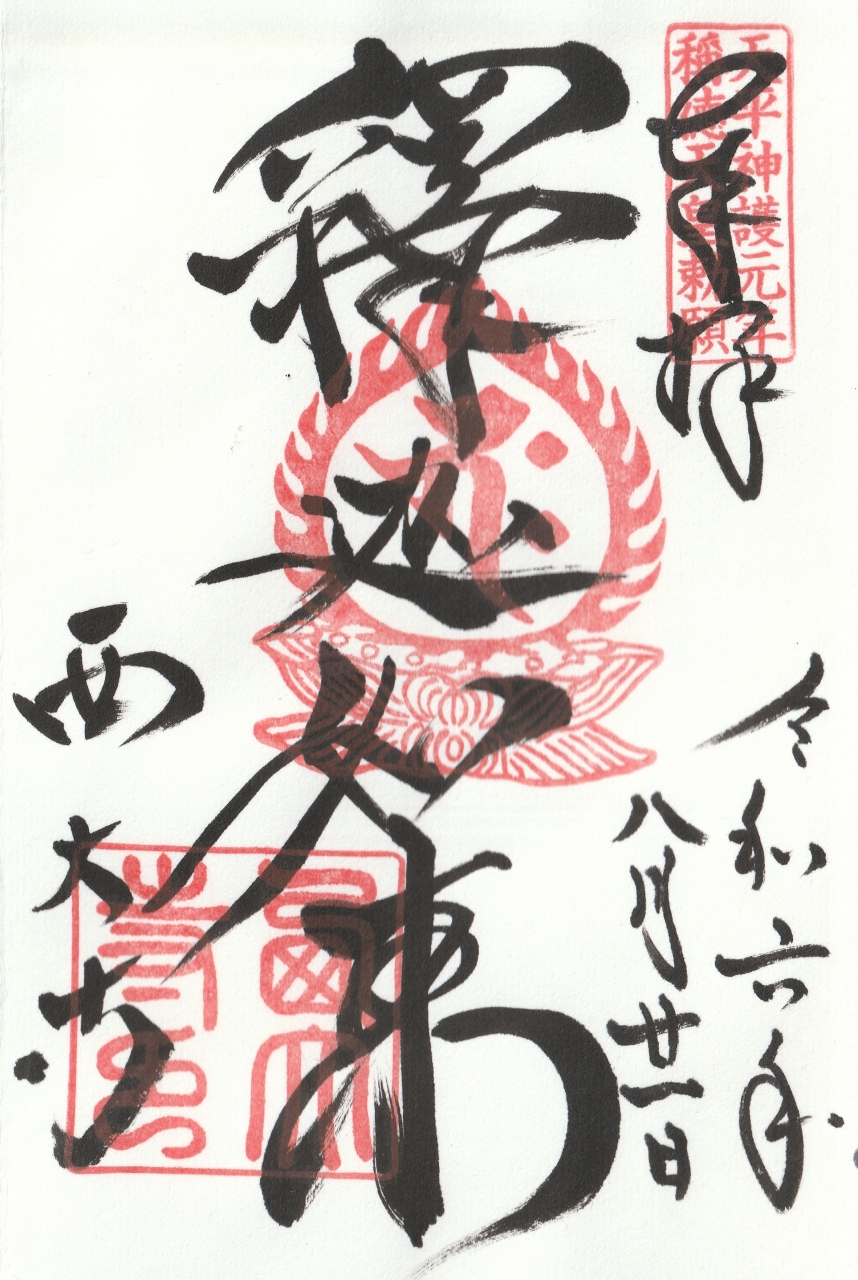 天平神護元年
稱徳天皇勅願
奉拝
令和六年
八月廿一日
釋迦如来
西大寺